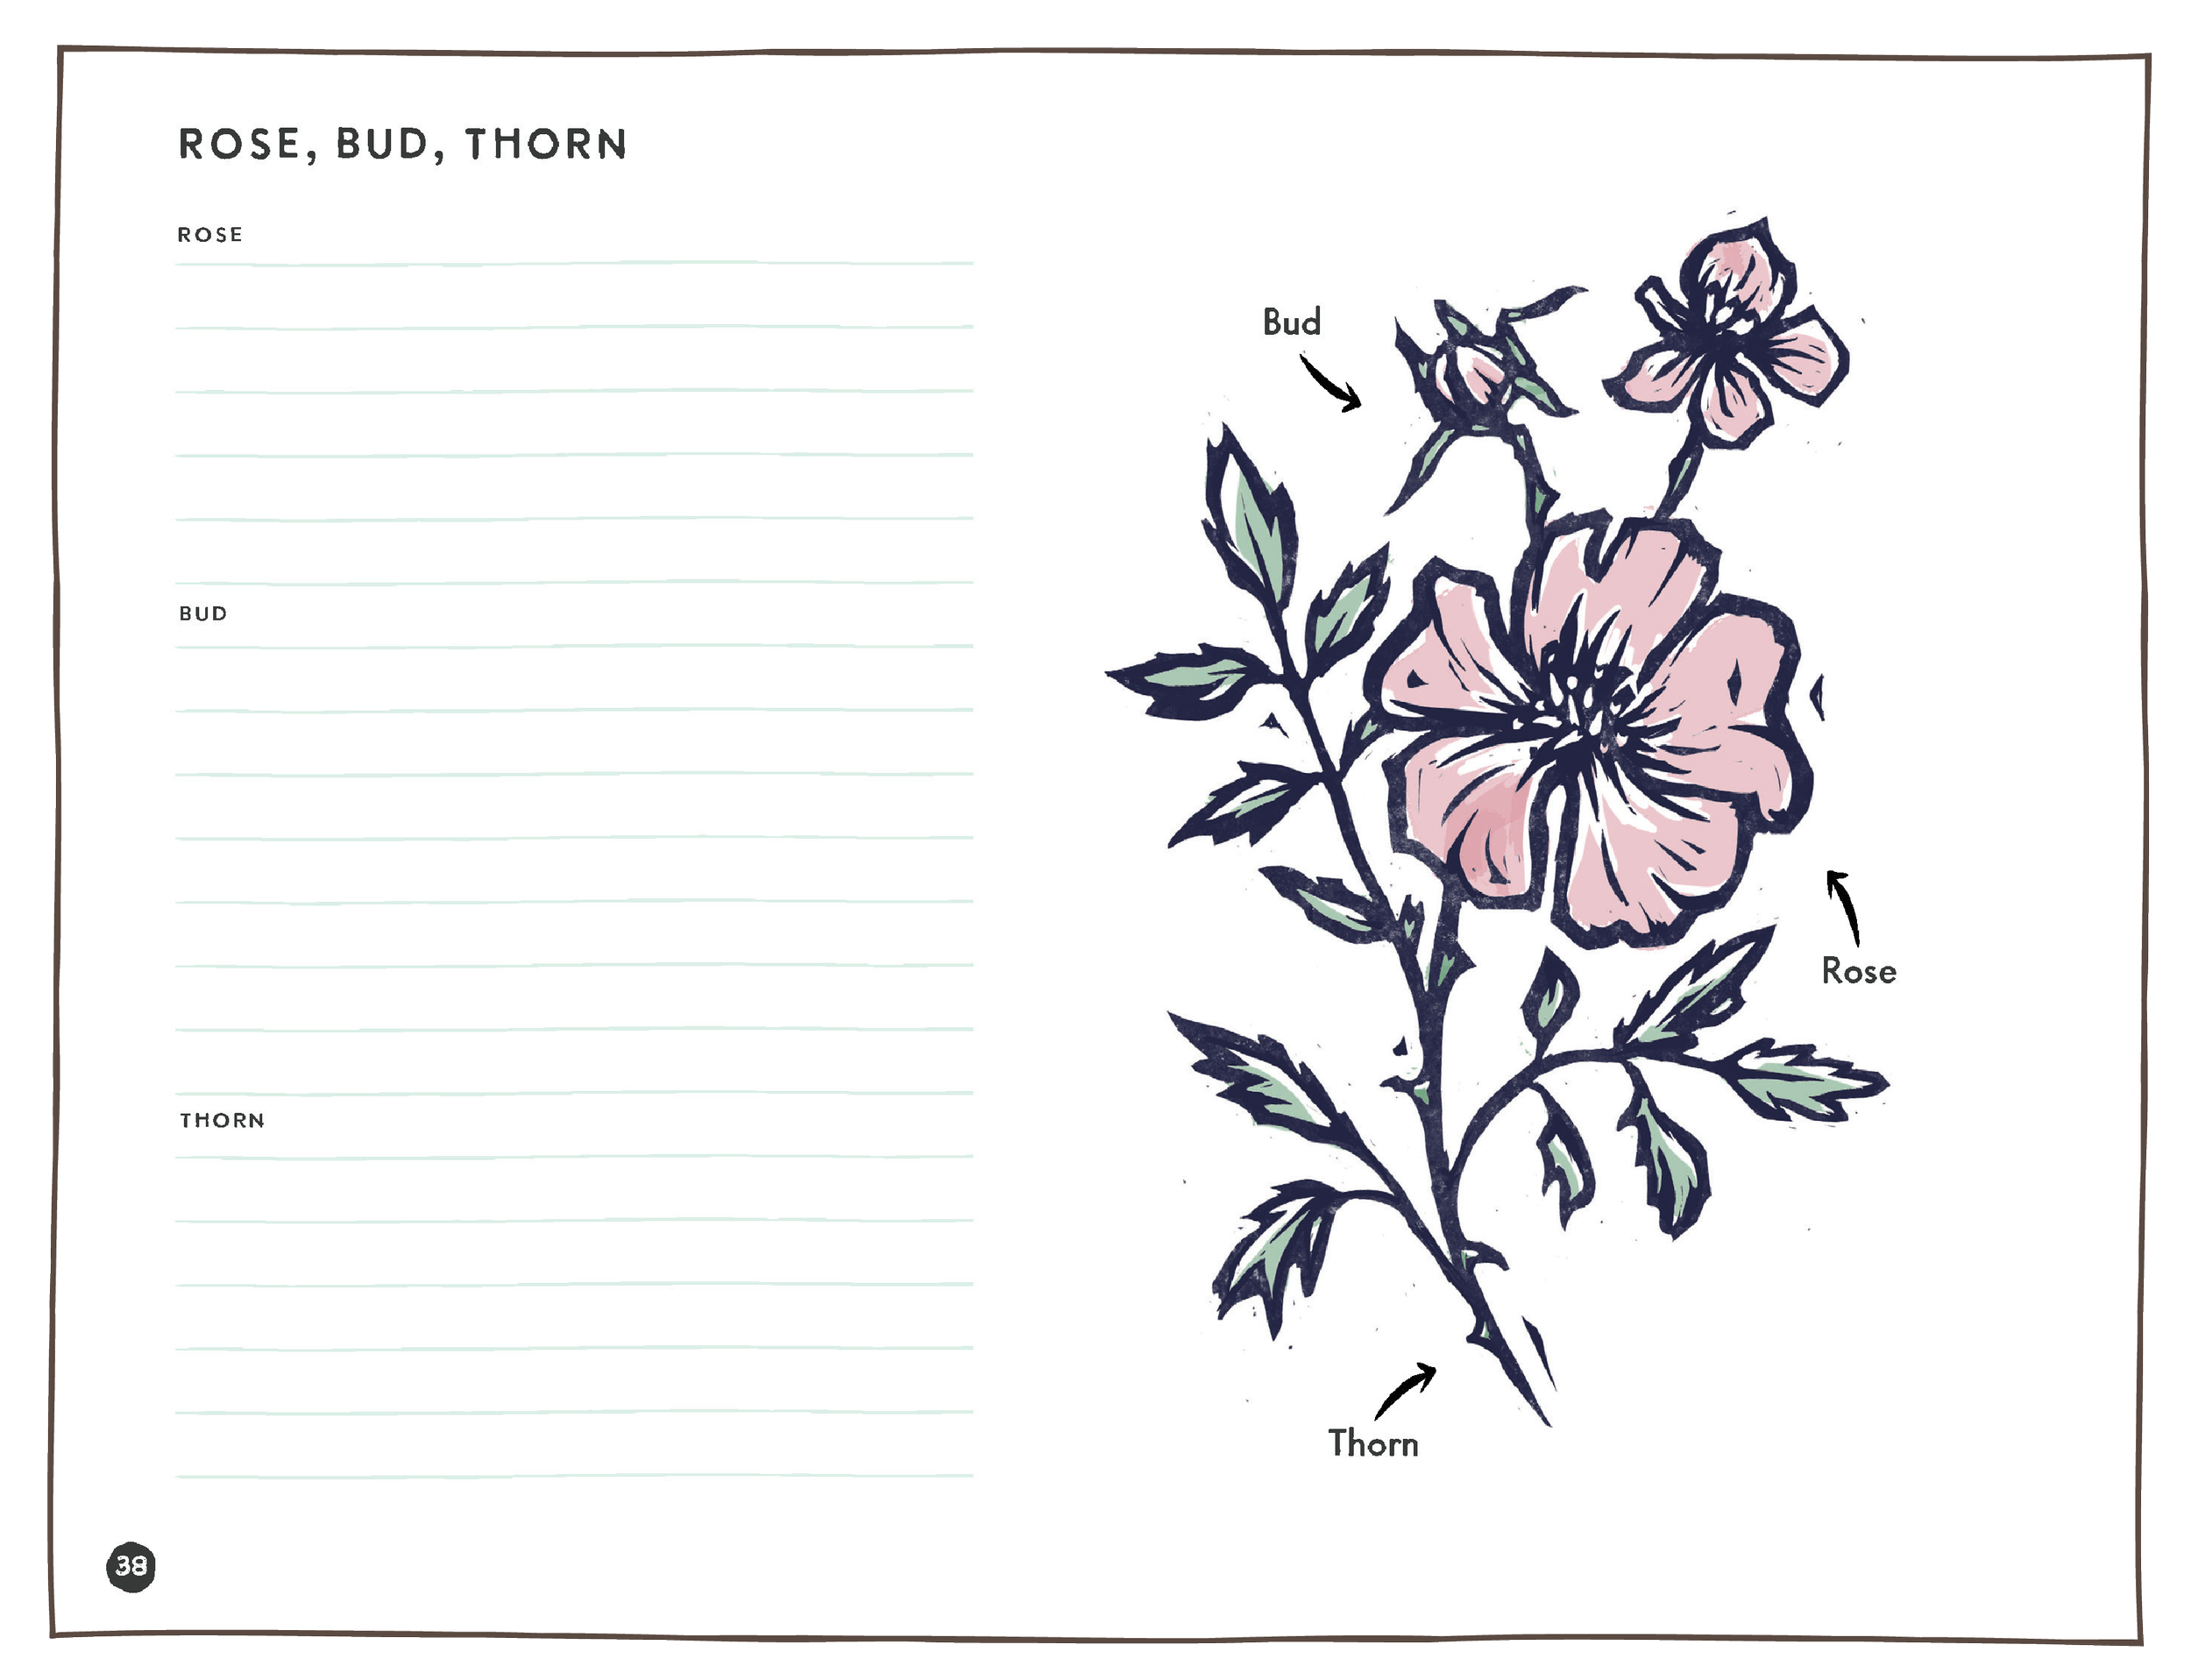 ROSE, BUD, THORN
ROSE
BUD
THORN
Bud
Rose
Thorn
38